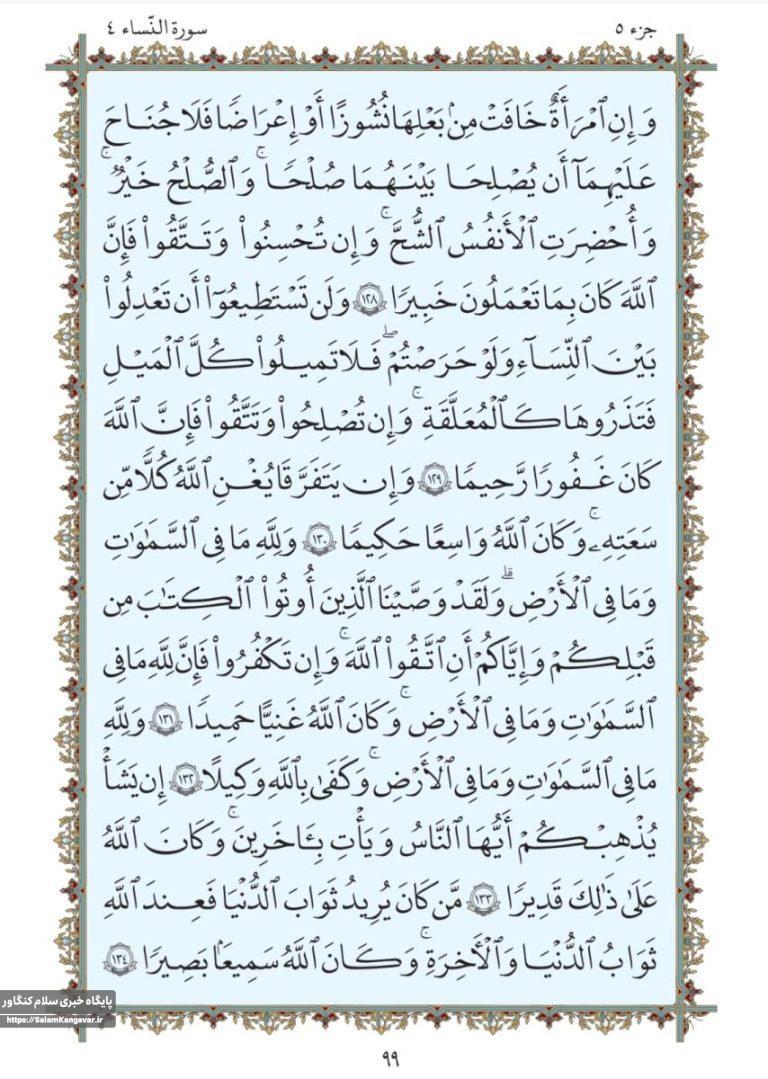 جزء ٥
سورة النّساء ٤
وَإِنِ ٱمْرَأَةٌ خَافَتْ مِنۢ بَعْلِهَا نُشُوزًا أَوْ إِعْرَاضًا فَلَا جُنَاحَ
عَلَيْهِمَآ أَن يُصْلِحَا بَيْنَهُمَا صُلْحًا ۚ وَٱلصُّلْحُ خَيْرٌ ۗ
وَأُحْضِرَتِ ٱلْأَنفُسُ ٱلشُّحَّ ۚ وَإِن تُحْسِنُوا۟ وَتَتَّقُوا۟ فَإِنَّ
ٱللَّهَ كَانَ بِمَا تَعْمَلُونَ خَبِيرًا ١٢٨ وَلَن تَسْتَطِيعُوٓا۟ أَن تَعْدِلُوا۟
بَيْنَ ٱلنِّسَآءِ وَلَوْ حَرَصْتُمْ ۖ فَلَا تَمِيلُوا۟ كُلَّ ٱلْمَيْلِ
فَتَذَرُوهَا كَٱلْمُعَلَّقَةِ ۚ وَإِن تُصْلِحُوا۟ وَتَتَّقُوا۟ فَإِنَّ ٱللَّهَ
كَانَ غَفُورًا رَّحِيمًا ١٢٩ وَإِن يَتَفَرَّقَا يُغْنِ ٱللَّهُ كُلًّا مِّن
سَعَتِهِۦ ۚ وَكَانَ ٱللَّهُ وَاسِعًا حَكِيمًا ١٣٠ وَلِلَّهِ مَا فِى ٱلسَّمَٰوَٰتِ
وَمَا فِى ٱلْأَرْضِ ۗ وَلَقَدْ وَصَّيْنَا ٱلَّذِينَ أُوتُوا۟ ٱلْكِتَٰبَ مِن
قَبْلِكُمْ وَإِيَّاكُمْ أَنِ ٱتَّقُوا۟ ٱللَّهَ ۚ وَإِن تَكْفُرُوا۟ فَإِنَّ لِلَّهِ مَا فِى
ٱلسَّمَٰوَٰتِ وَمَا فِى ٱلْأَرْضِ ۚ وَكَانَ ٱللَّهُ غَنِيًّا حَمِيدًا ١٣١ وَلِلَّهِ
مَا فِى ٱلسَّمَٰوَٰتِ وَمَا فِى ٱلْأَرْضِ ۚ وَكَفَىٰ بِٱللَّهِ وَكِيلًا ١٣٢ إِن يَشَأْ
يُذْهِبْكُمْ أَيُّهَا ٱلنَّاسُ وَيَأْتِ بِـَٔاخَرِينَ ۚ وَكَانَ ٱللَّهُ
عَلَىٰ ذَٰلِكَ قَدِيرًا ١٣٣ مَّن كَانَ يُرِيدُ ثَوَابَ ٱلدُّنْيَا فَعِندَ ٱللَّهِ
ثَوَابُ ٱلدُّنْيَا وَٱلْـَٔاخِرَةِ ۚ وَكَانَ ٱللَّهُ سَمِيعًۢا بَصِيرًا ١٣٤
پایگاه خبری سلام کنگاور
https://SalamKangavar.ir
٩٩